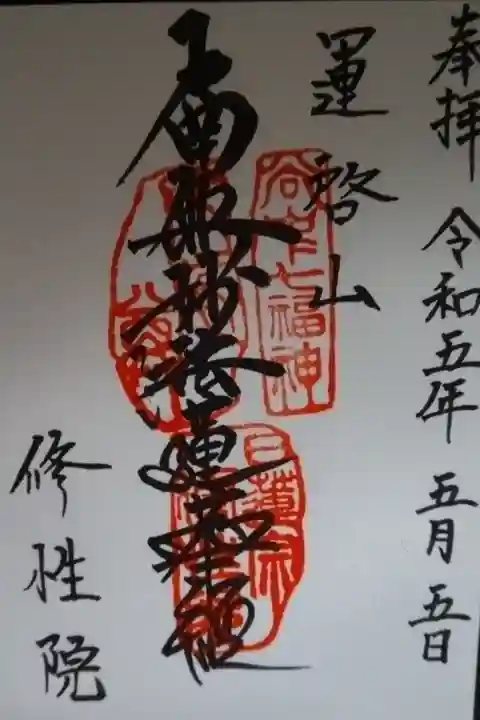 奉拝 令和五年 五月五日
運啓山
谷中七福神
南無妙法蓮華経
修性院